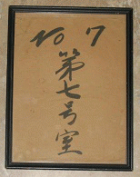 No 7
第七号室